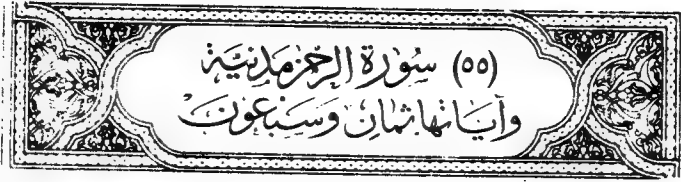 (٥٥) سُورَة الرَّحمٰن مَدَنِيَّة
وَآيَاتهَا ثمَانِ وَسَبْعُونَ